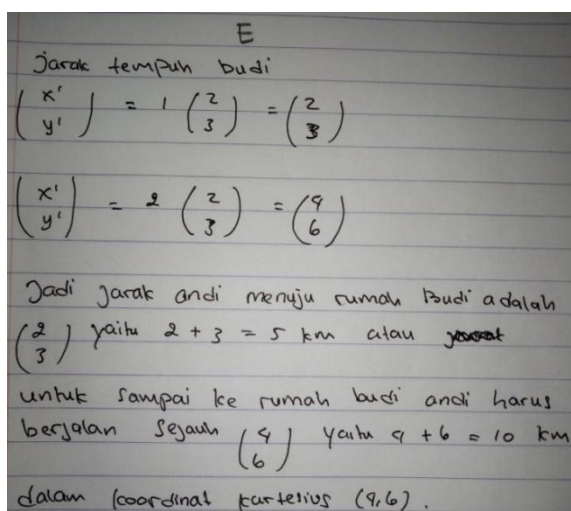 E
Jarak tempuh budi
( x' y' ) = 1 ( 2 3 ) = ( 2 3 )
( x' y' ) = 2 ( 2 3 ) = ( 4 6 )
Jadi Jarak andi menuju rumah Budi adalah
( 2 3 ) yaitu 2 + 3 = 5 km atau
untuk sampai ke rumah budi andi harus
berjalan sejauh ( 4 6 ) yaitu 4 + 6 = 10 km
dalam koordinat kartesius (4,6).